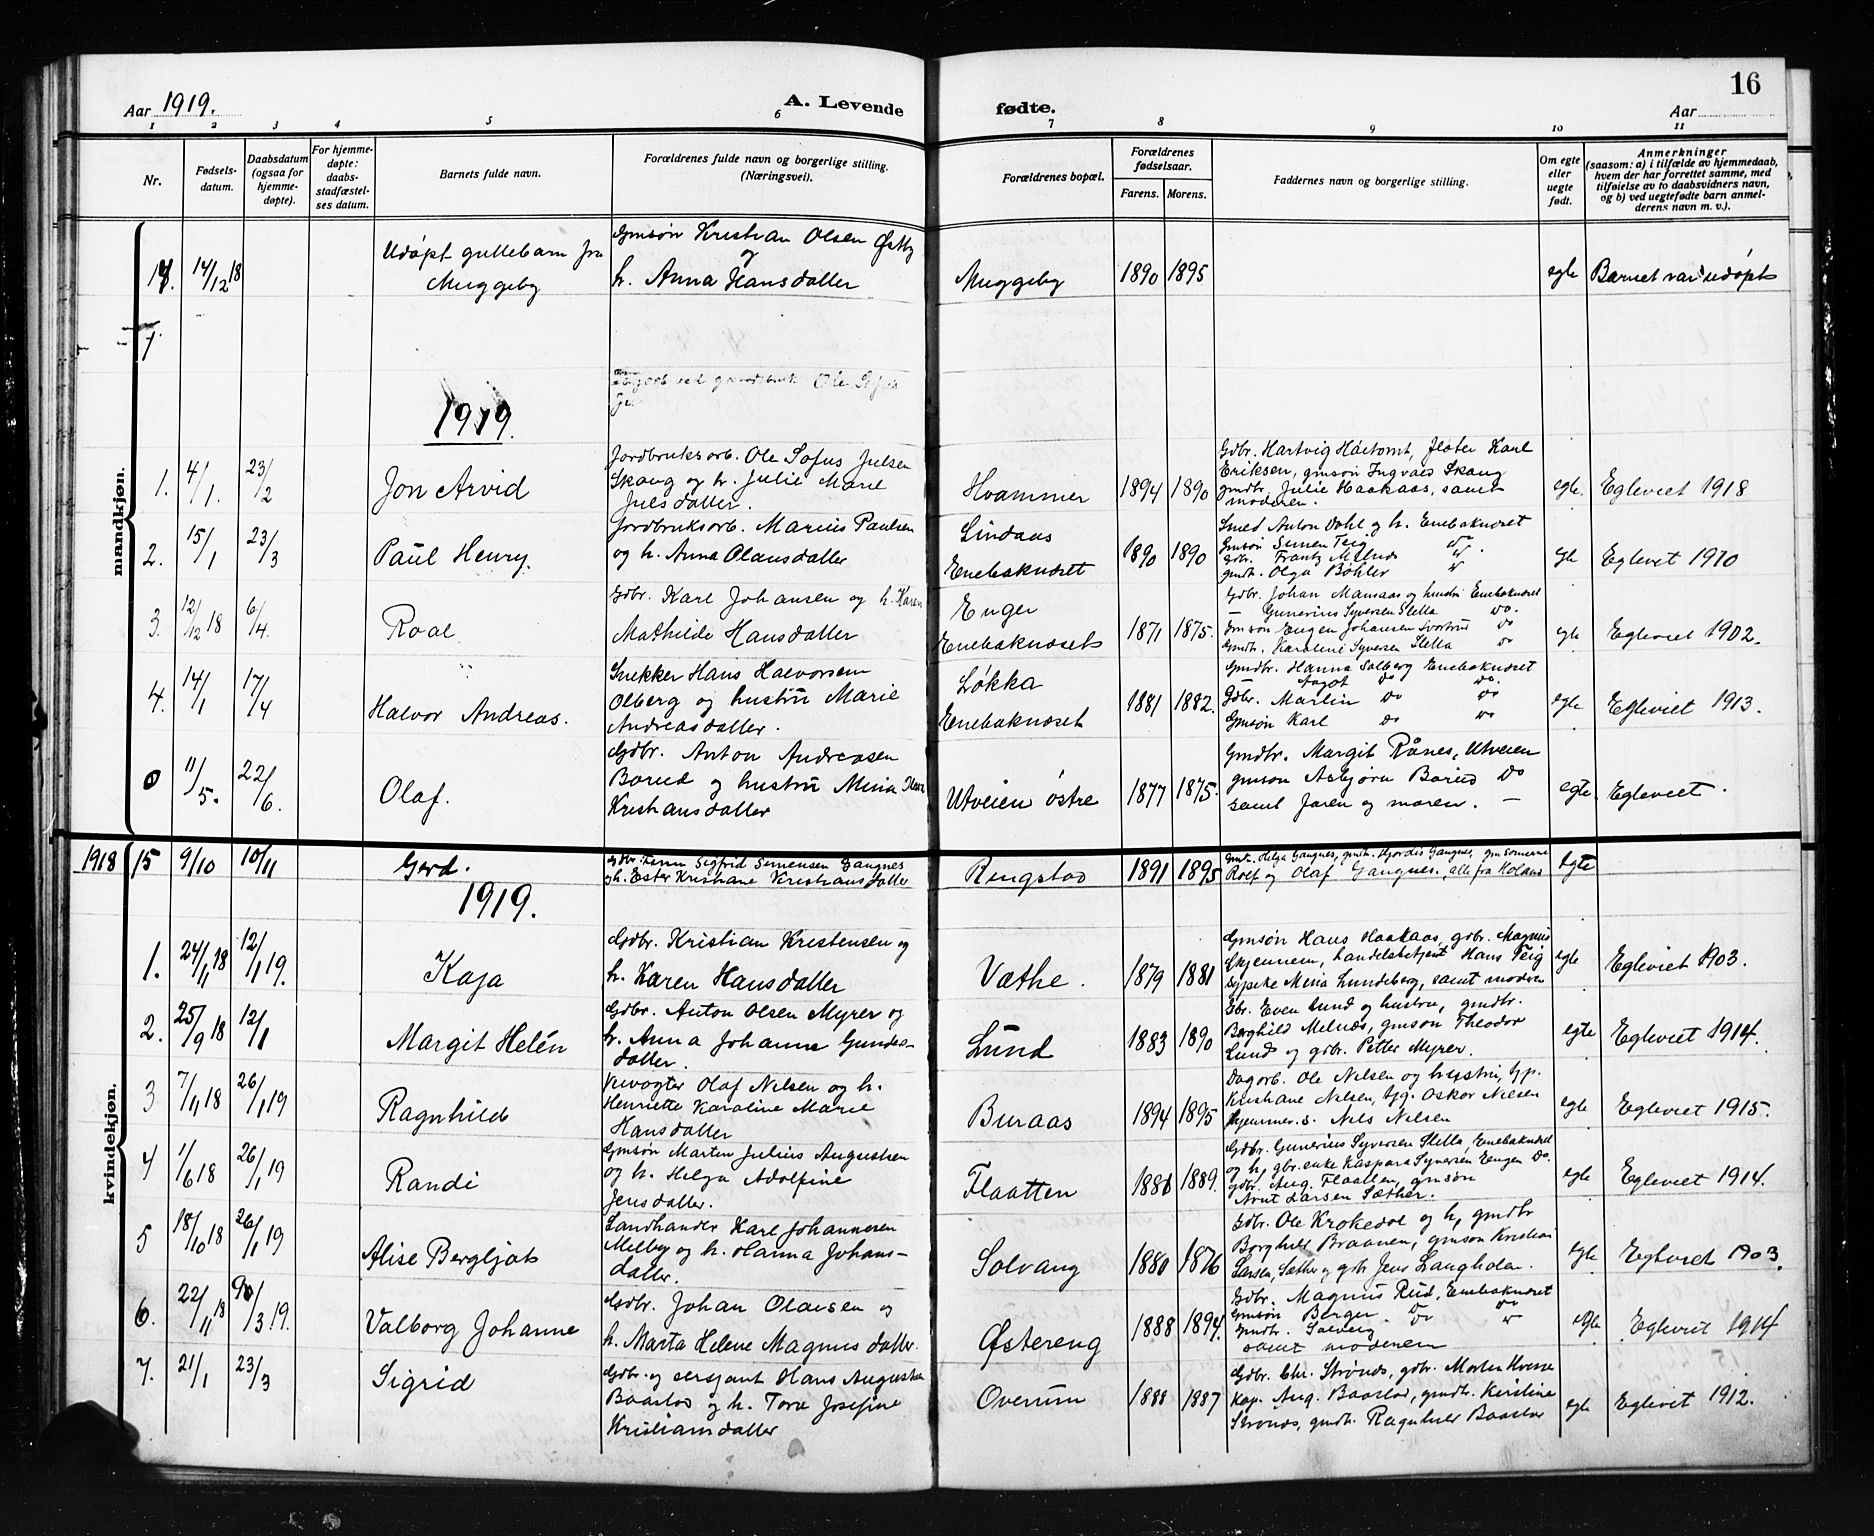 Aar 1919.
A. Levende fødte.
16
Aar
1 2 3 4 5 6 7 8 9 10 11
Nr.
Fødsels-
datum.
Daabsdatum
(ogsaa for
hjemme-
døpte).
For hjemme-
døpte:
daabs-
stadfæstel-
ses datum.
Barnets fulde navn.
Forældrenes fulde navn og borgerlige stilling.
(Næringsvei).
Forældrenes bopæl.
Forældrenes
fødselsaar.
Farens. Morens.
Faddernes navn og borgerlige stilling.
Om egte
eller
uegte
født.
Anmerkninger
(saasom: a) i tilfælde av hjemmedaab,
hvem der har forrettet samme, med
tilføielse av to daabsvidners navn,
og b) ved uegtefødte barn anmel-
derens navn m. v.).
mandkjøn.
14/12 18
Udøpt guttebarn fra
Muggeby
Gmsøn Kristian Olsen Østby
og
h. Anna Hansdatter
Muggeby 1890 1895
egte Barnet var udøpt
1919.
1. 4/1. 23/2 Jon Arvid
Jordbruksarb. Ole Sofus Julsen
Skaug og h. Julie Marie
Julsdatter.
Hvammer 1894 1890
Gdbr. Hartvig Haitomt, fløter Karl
Eriksen, gmsøn Ingvald Skaug
gmdtr. Julie Haakaas, samt
moderen.
egte. Egteviet 1918
2. 15/1 23/3 Paul Henry.
Jordbruksarb. Marius Paulsen
og h. Anna Olausdatter
Lindaas
Enebakneset 1890 1890
Smed Anton Dahl og h. Enebakneset
Gmsøn Simen Teig do
Gdbr. Frantz Melnes
gmdt. Olga Bøhler
egte Egteviet 1910
3. 12/12 18 6/4. Roal
Gdbr. Karl Johansen og h. Karen
Mathilde Hansdatter
Enger
Enebakneset 1871 1875.
Gdbr. Johan Mansaas og hustru Enebakneset
— Gunerius Syversen Stella do.
Gmsøn Eugen Johansen Svartrud do
Gmdt. Karoline Syversen Stella do
egte Egteviet 1902.
4. 14/1 17/4 Halvor Andreas.
Snekker Hans Halvorsen
Olberg og hustru Marie
Andreasdatter.
Løkka
Enebakneset 1881 1882.
Gmdbr. Hanna Solberg Enebakneset
Aagot do do.
Gdbr. Martin do do
Gmsøn Karl do do
egte Egteviet 1913.
0 11/5. 22/6. Olaf.
Gdbr. Anton Andreasen
Borud og hustru Mina
Kristiansdatter
Utveien østre 1877 1875.
Gmdbr. Margit Rånes, Utveien
gmsøn Asbjørn Borud do
samt faren og moren. —
egte Egteviet.
kvindekjøn.
1918 15 9/10 10/11 Gerd.
Gdbr. Sigfrid Simensen Gangnes
og h. Ester Kristiane Kristiansdatter
Ringstad 1891 1895
Gmdt. Helga Gangnes, gmdt. Hjørdis Gangnes, gmsønnerne
Rolf og Olaf Gangnes, alle fra Kolaas
egte
1919.
1. 24/11 18 12/1 19. Kaja
Gdbr. Kristian Kristensen og
h. Karen Hansdatter
Væthe. 1879 1881
Gmsøn Hans Haakaas, gdbr. Magnus
Gjennem, handelsbetjent Hans Teig
sypike Mina Lundeberg, samt moderen
egte Egteviet 1903.
2. 25/9 18 12/1 Margit Helén
Gdbr. Anton Olsen Myrer og
h. Anna Johanne Gunders-
datter.
Lund 1883 1890
Gbr. Even Lund og hustru, gmdbr.
Borghild Melnes, gmsøn Theodor
Lund og gdbr. Petter Myrer.
egte Egteviet 1914.
3 7/11 18 26/1 19 Ragnhild
Veivogter Olaf Nilsen og h.
Henriette Karoline Marie
Hansdatter
Buraas 1894 1895
Dagarb. Ole Nilsen og hustru, tjp.
Kristiane Nilsen, tjg. Oskar Nilsen
hjemmev. s. Nels Nilsen
egte Egteviet 1915.
4 1/6 18 26/1 19 Randi
Gmsøn Martin Julius Augustsen
og h. Helga Adolfine
Jensdatter.
Flaatten 1886 1889.
Gdbr. Gunerius Syversen Stella, Enebakneset
og h, gbr.enke Kaspara Syversen Eugen do.
gdbr. Aug. Flaatten, gmsøn
Arnt Larsen Sæther.
egte Egteviet 1914.
5 18/10 18 26/1 19 Alise Bergljot
Landhandler Karl Johannesen
Melby og h. Hanna Johans-
datter.
Solvang 1880 1876
Gdbr. Ole Krokedal og h, gmdbr
Borghild Braanen, gmsøn Kristian
Larsen, Sæther og gdbr. Jens Langholen.
egte Egteviet 1903.
6. 22/11 18 9/3 19. Valborg Johanne
Gdbr. Johan Olaisen og
h. Marta Helene Magnusdatter.
Østereng 1888 1894.
Gdbr. Magnus Rud, Enebakneset
Gmsøn Berger do do
Gmdtr. Solveig
samt moderen
egte Egteviet 1914
7. 21/1 23/3 Sigrid
Gdbr. og sersjant Hans Augustsen
Baastad og h. Tora Josefine
Kristiansdatter
Overum 1888 1887
Gdbr. Chr. Strønes, gdbr. Morten
Kap. Aug. Baastad, gmdt. Kirstine
Strønes, gmdt. Ragnhild Baastad
egte Egteviet 1912.